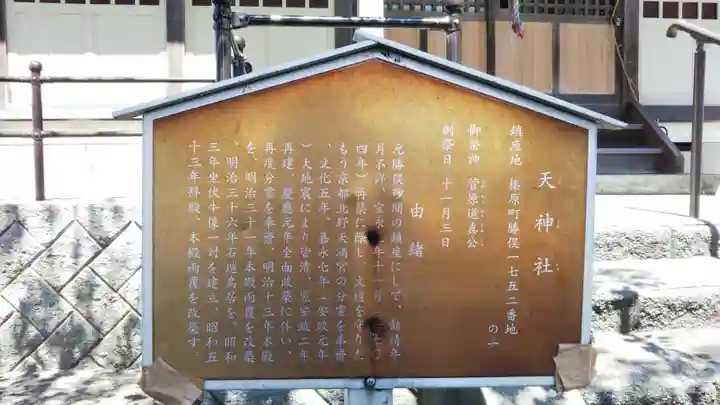 天神社
鎮座地 榛原町勝俣一七五二番地
の一
御祭神 菅原道真公
例祭日 十一月三日
由緒
元勝俣砂間の鎮座にして、勧請年
月不詳、宝永元年十一月(一七〇
四年)再築に際し、火壇を守りた
もう京都北野天満宮の分霊を奉齋
、文化五年、嘉永七年(安政元年
)大地震により皆潰、翌安政二年
再建、慶應元年全面改築に伴い、
再度分霊を奉齋、明治十三年本殿
を、明治三十一年本殿雨覆を改築
、明治三十六年石地鳥居を、昭和
三年坐伏牛像一対を建立、昭和五
十三年拝殿、本殿雨覆を改築す。